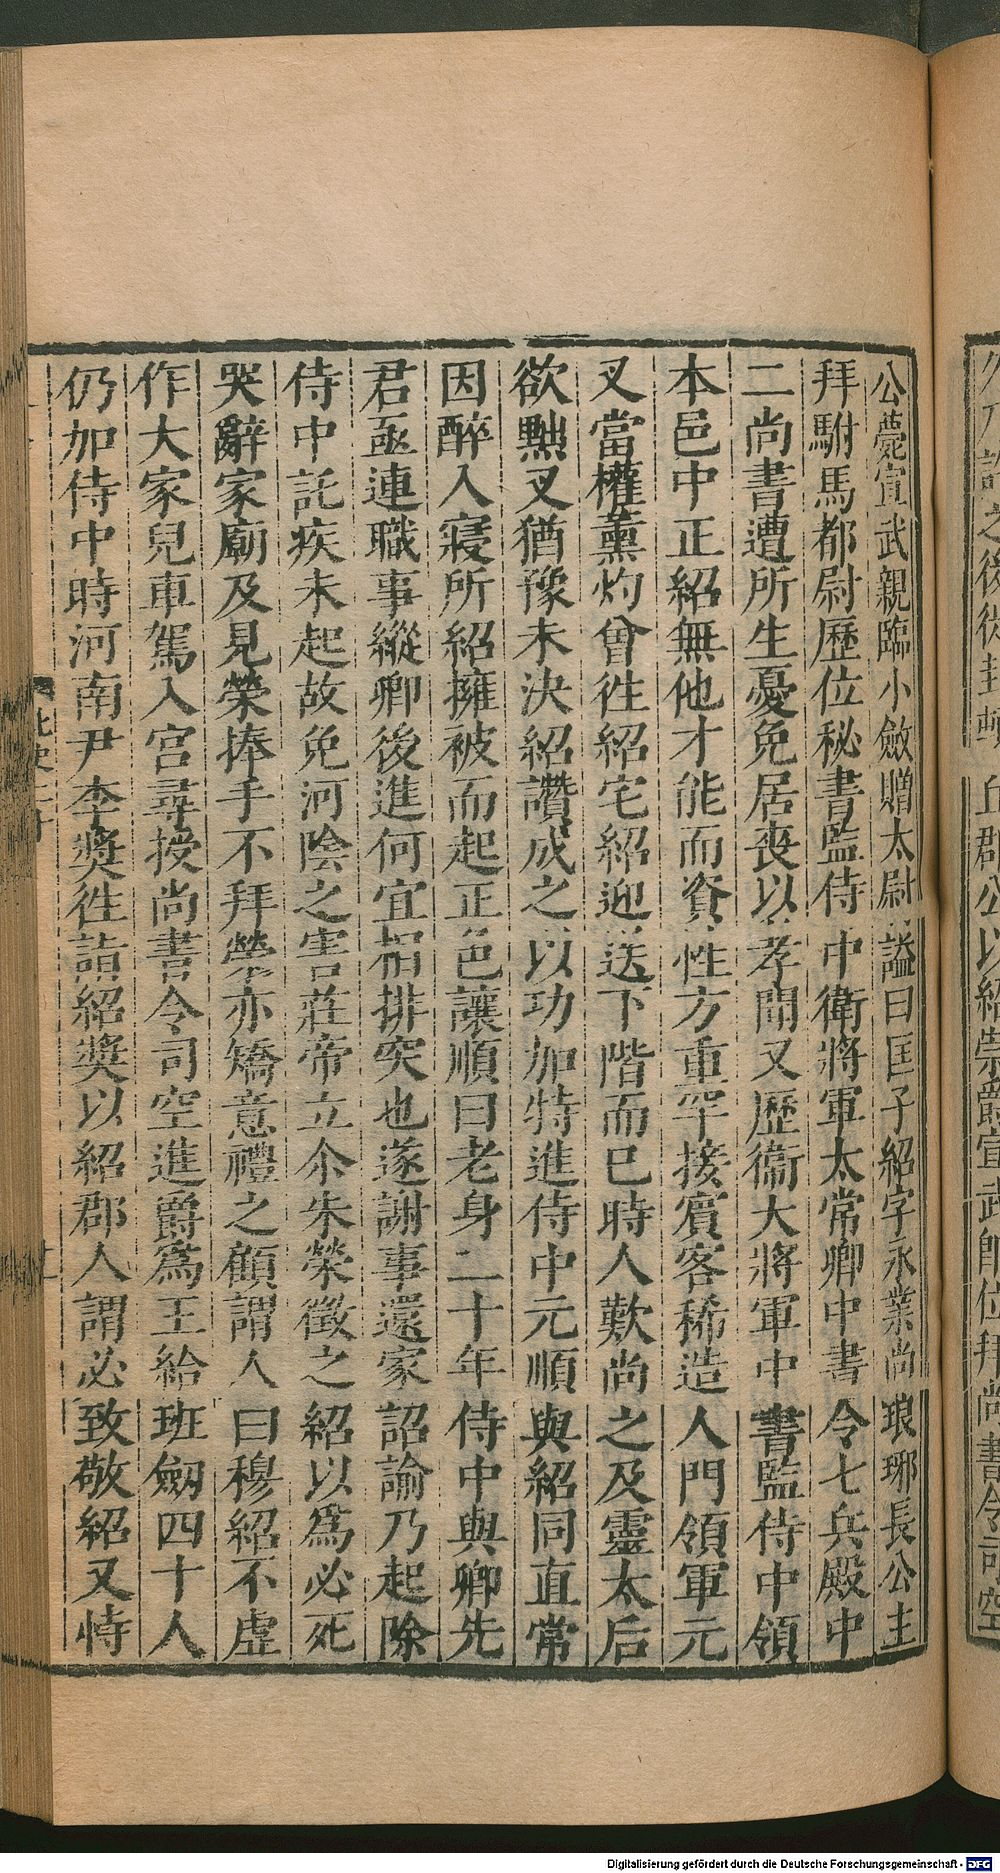 公薨宣武親臨小斂贈太尉諡曰匡子紹字永業尚琅琊長公主
拜駙馬都尉歷位秘書監侍中衛將軍太常卿中書令七兵殿中
二尚書遭所生憂免居喪以孝聞又歷衞大將軍中書監侍中領
本邑中正紹無他才能而資性方重罕接賓客稀造人門領軍元
叉當權薰灼曾徃紹宅紹迎送下階而已時人歎尚之及靈太后
欲黜叉猶豫未決紹讚成之以功加特進侍中元順與紹同直常
因醉入寢所紹擁被而起正色讓順曰老身二十年侍中與卿先
君亟連職事縱卿後進何宜相排突也遂謝事還家詔諭乃起除
侍中託疾未起故免河陰之害莊帝立尒朱榮徵之紹以爲必死
哭辭家廟及見榮捧手不拜榮亦矯意禮之顧謂人曰穆紹不虛
作大家兒車駕入宮尋授尚書令司空進爵爲王給班劔四十人
仍加侍中時河南尹李奬徃詣紹奬以紹郡人謂必致敬紹又恃
丘郡公以紹崇爵宣武卽位拜尚書令司空
Digitalisierung gefördert durch die Deutsche Forschungsgemeinschaft - DFG